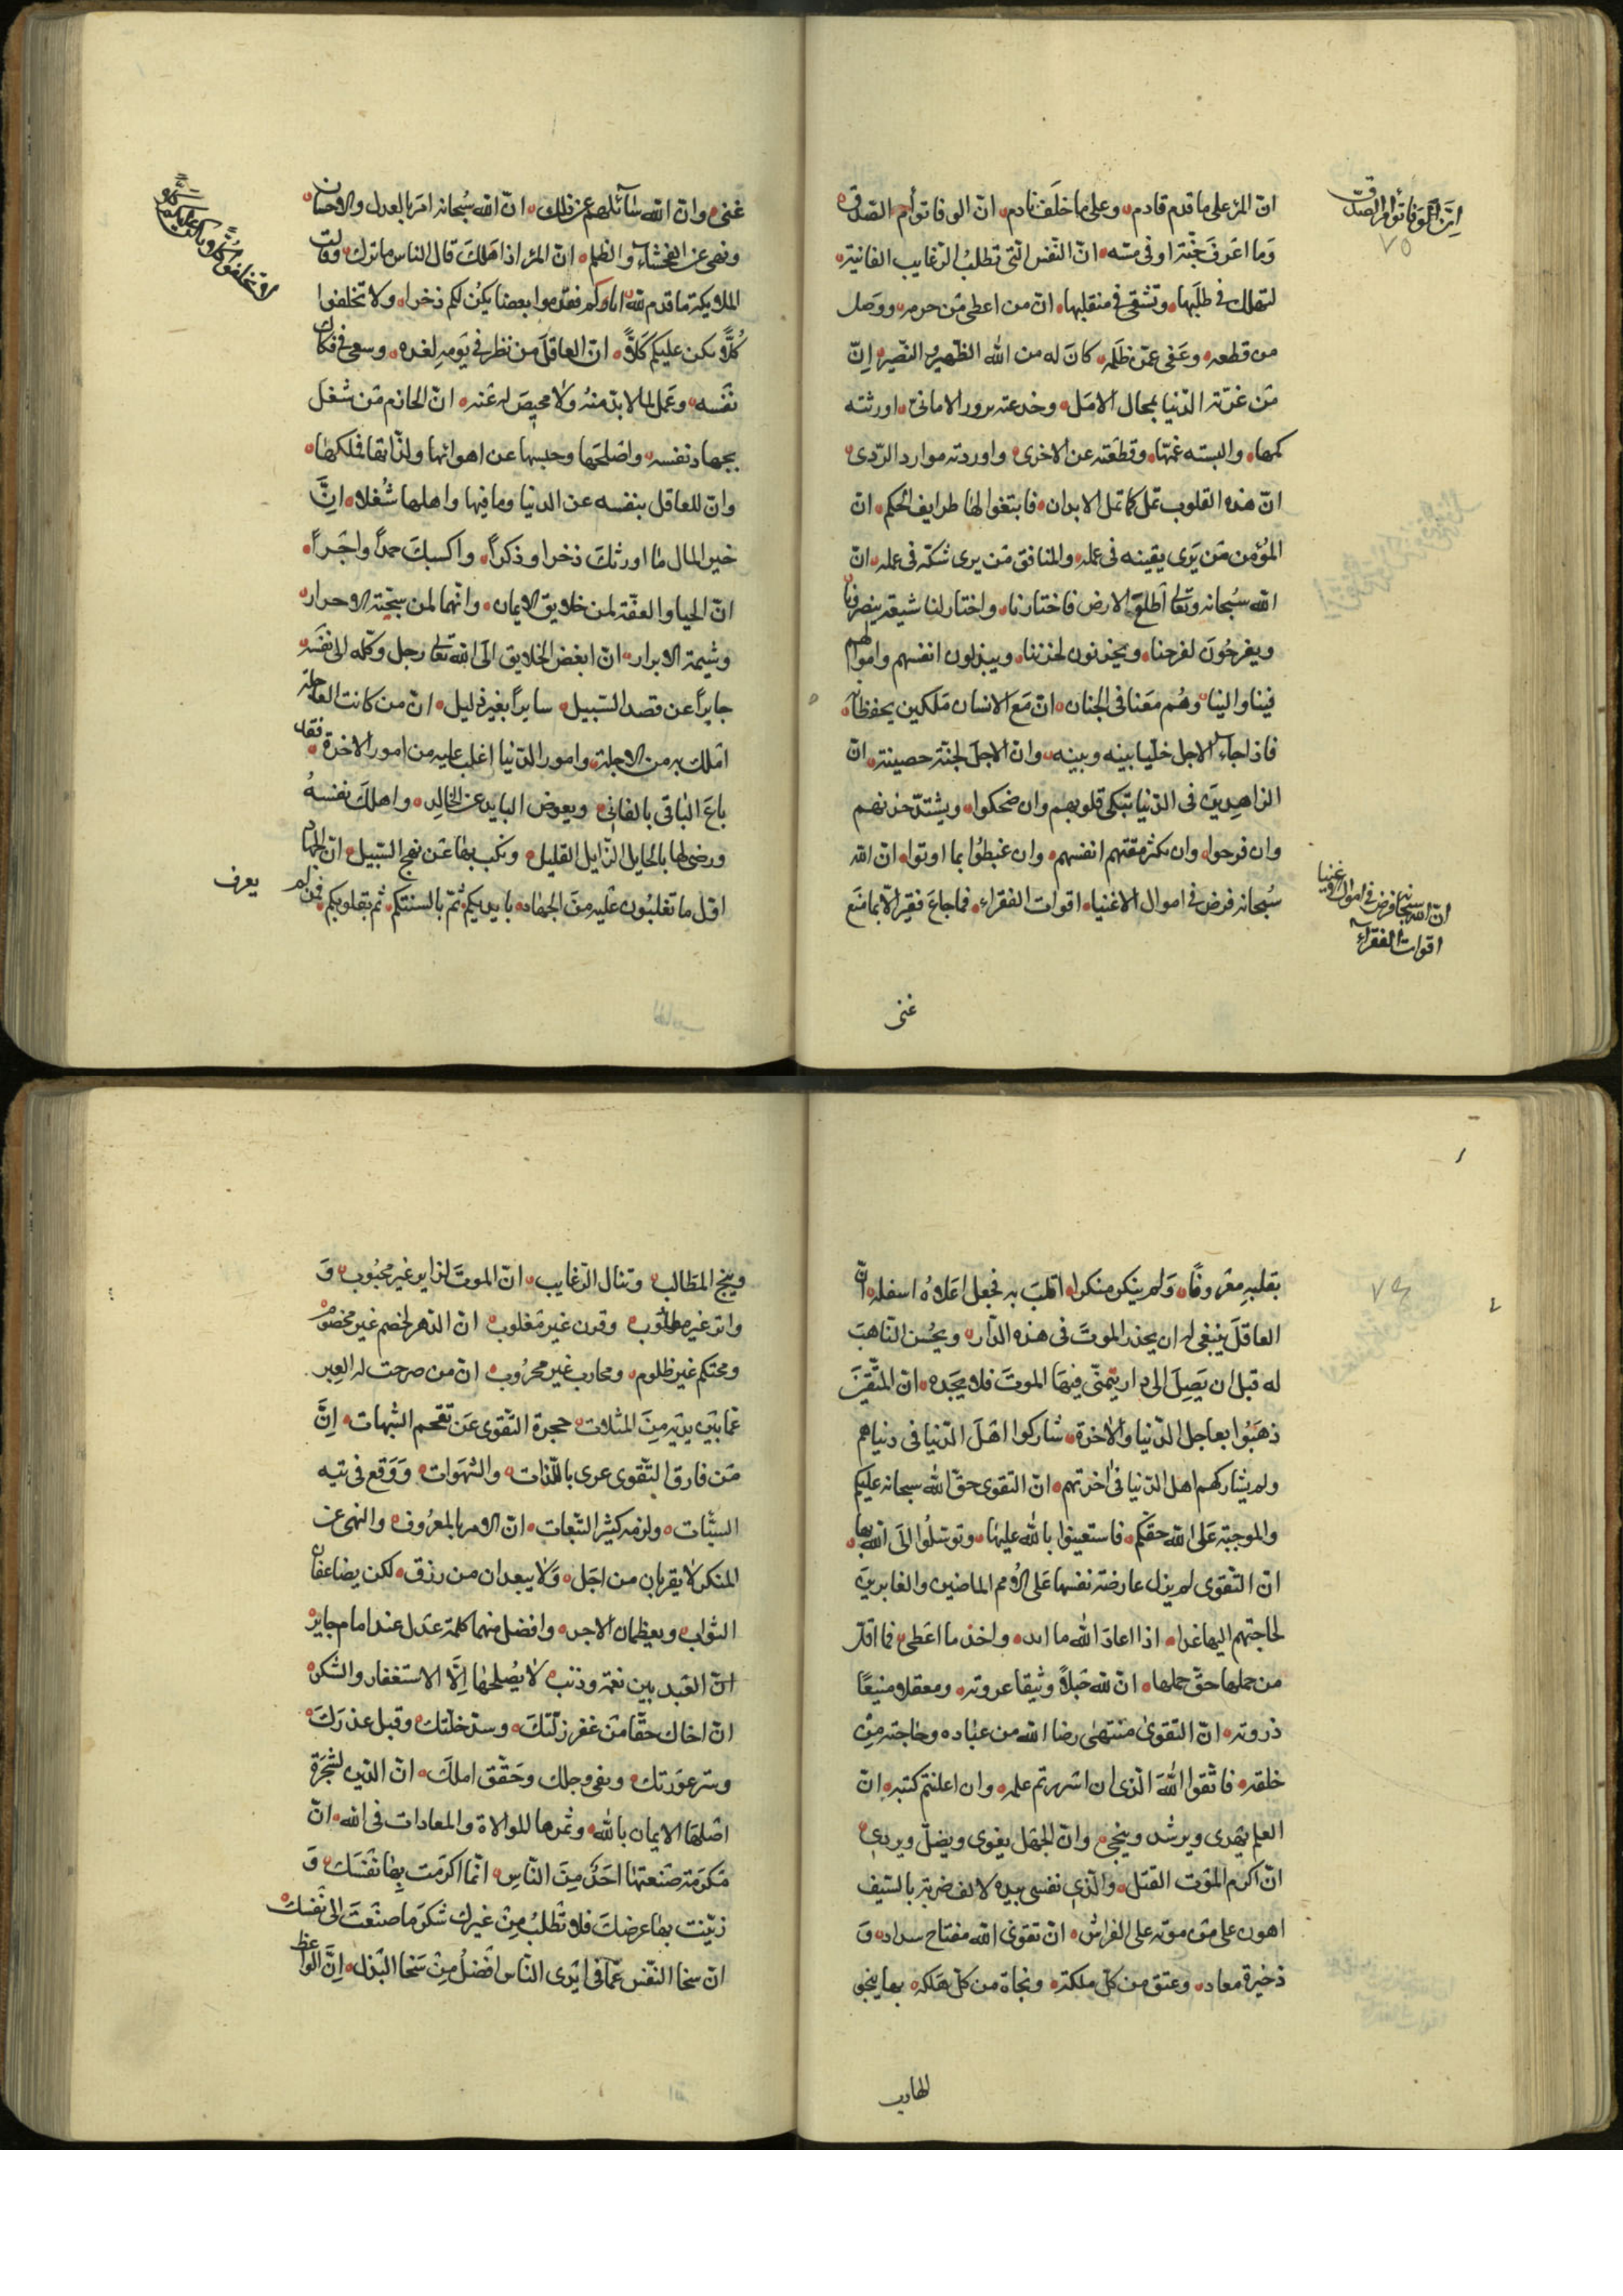 ان المرء علی ما قدم قادم وعلی ما خلف نادم ان الوفا توأم الصدق
وما اعرف جنة اوفی منه ان النفس التی تطلب الرغایب الفانیة
لتهلك فی طلبها وتشقی فی منقلبها ان من اعطی من حرمه ووصل
من قطعه وعفی عمن ظلمه کان له من الله الظهیر والنصیر ان
من غرته الدنیا بمحال الامل وخدعته بزور الامانی اورثته
کمها والبسته عمها وقطعته عن الاخری واوردته موارد الردی
ان هذه القلوب تمل کما تمل الابدان فابتغوا لها طرایف الحکم ان
المؤمن من یری یقینه فی عمله والمنافق من یری شکه فی عمله ان
الله سبحانه وتعالی اطلع الارض فاختارنا واختار لنا شیعة ینصرونا
ویفرحون لفرحنا ویحزنون لحزننا ویبذلون انفسهم واموالهم
فینا والینا وهم معنا فی الجنان ان مع الانسان ملکین یحفظانه
فاذا جاء الاجل خلیا بینه وبینه وان الاجل لجنة حصینة ان
الزاهدین فی الدنیا تبکی قلوبهم وان ضحکوا ویشتد حزنهم
وان فرحوا وان یکثر مقتهم انفسهم وان غبطوا بما اوتوا ان الله
سبحانه فرض فی اموال الاغنیاء اقوات الفقراء فما جاع فقیر الا بما منع
غنی
ان الوفا توأم الصدق
٧٥
ان الله سبحانه فرض فی اموال الاغنیا
اقوات الفقراء
غنی وان الله سائلهم عن ذلك ان الله سبحانه امر بالعدل والاحسان
ونهی عن الفحشاء والظلم ان المرء اذا هلك قال الناس ما ترك وقالت
الملائکة ما قدم لله اباؤکم فقدموا بعضا یکن لکم ذخرا ولا تخلفوا
کلا یکن علیکم کلا ان العاقل من نظر فی یومه لغده وسعی فی فکاك
نفسه وعمل لما لا بد منه ولا محیص له عنه ان الحازم من شغل
بجهاد نفسه واصلحها وحبسها عن اهوائها ولذاتها فملکها
وان للعاقل بنفسه عن الدنیا وما فیها واهلها شغلا ان
خیر المال ما اورثك ذخرا وذکرا واکسبك حمدا واجرا
ان الحیا والعفة لمن خلایق الایمان وانهما لمن سجیة الاحرار
وشیمة الابرار ان ابغض الخلایق الی الله تعالی رجل وکله الی نفسه
جایرا عن قصد السبیل سایرا بغیر دلیل ان من کانت العاجلة
املك به من الاجلة وامور الدنیا اغلب علیه من امور الاخرة فقد
باع الباقی بالفانی ویعوض الباید عن الخالد واهلك نفسه
ورضی لها بالحایل الزایل القلیل ونکب بها عن نهج السبیل ان الجهاد
اول ما تغلبون علیه من الجهاد بایدیکم ثم بالسنتکم ثم بقلوبکم فمن لم
یعرف
بقلبه معروفا ولم ینکر منکرا قلب به فجعل اعلاه اسفله ان
العاقل ینبغی له ان یحذر الموت فی هذه الدار ویحسن التاهب
له قبل ان یصل الی دار یتمنی فیها الموت فلا یجده ان المتقین
ذهبوا بعاجل الدنیا والاخرة شارکوا اهل الدنیا فی دنیاهم
ولم یشارکهم اهل الدنیا فی اخرتهم ان التقوی حق الله سبحانه علیکم
والموجبة علی الله حقکم فاستعینوا بالله علیها وتوسلوا الی الله بها
ان التقوی لم یزل عارضة نفسها علی الامم الماضین والغابرین
لحاجتهم الیها غدا اذا اعاد الله ما ابد واخذ ما اعطی فما اقل
من حملها حق حملها ان لله حبلا وثیقا عروته ومعقلا منیعا
ذروته ان التقوی منتهی رضا الله من عباده وحاجته من
خلقه فاتقوا الله الذی ان اسررتم علمه وان اعلنتم کتبه ان
العلم یهدی ویرشد وینجی وان الجهل یغوی ویضل ویردی
ان اکرم الموت القتل والذی نفسی بیده لالف ضربة بالسیف
اهون علی من موتة علی الفراش ان تقوی الله مفتاح سداد و
ذخیرة معاد وعتق من کل ملکة ونجاة من کل هلکة بها ینجو
الهارب
٧٤
وینجح المطالب وتنال الرغایب ان الموت لزایر غیر محبوب و
واتر غیر مطلوب وقرن غیر مغلوب ان الدهر لخصم غیر مخصوم
ومحتکم غیر ظلوم ومحارب غیر محروب ان من صرحت له العبر
عما بین یدیه من المثلات حجزة التقوی عن تقحم الشبهات ان
من فارق التقوی عری باللذات والشهوات ووقع فی تیه
السیئات ولزمه کثیر التبعات ان الامر بالمعروف والنهی عن
المنکر لا یقربان من اجل ولا یبعدان من رزق لکن یضاعفان
الثواب ویعظمان الاجر وافضل منهما کلمة عدل عند امام جایر
ان العبد بین نعمة وذنب لا یصلحها الا الاستغفار والشکر
ان اخاك حقا من غفر زلتك وسد خلتك وقبل عذرك
وستر عورتك ونفی وجلك وحقق املك ان الدین لشجرة
اصلها الایمان بالله وثمرها الموالاة والمعادات فی الله ان
مکرمة صنعتها احد من الناس انما اکرمت بها نفسك و
زینت بها عرضك فلا تطلب من غیرك شکر ما صنعت الی نفسك
ان سخا النفس عما فی ایدی الناس افضل من سخا البذل ان الواعظ